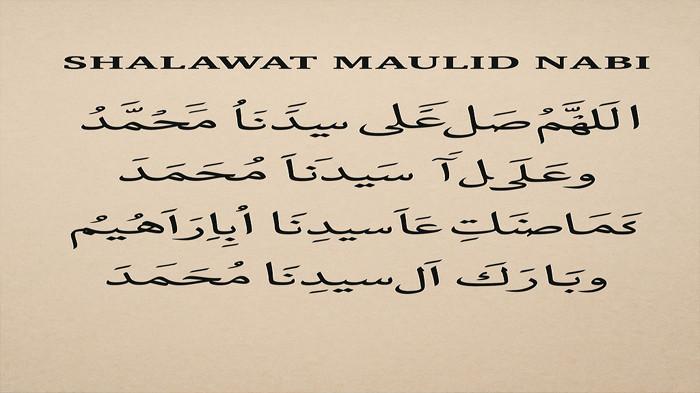 SHALAWAT MAULID NABI
اَللَهَّمُ صَل عَلى سيِدَنَاُ مَحُمَّدُ
وعَلَى ل آَ سَيدنَاَ مُحَمَدَ
كَمَا صنَلتِ عَاَسيدِنَا اُبِاِرَاَهُيمُ
وبَارَكَ اَل سيدِنَا مُحَمَدَ